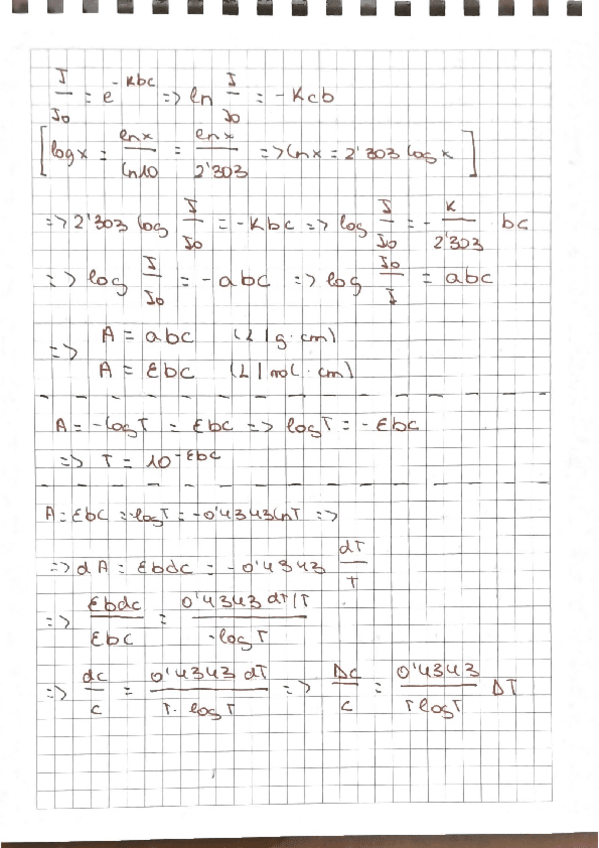 I/Io = e^-Kbc => ln I/Io = -Kcb
[log x = ln x/ln 10 = ln x/2'303 => ln x = 2'303 log x]
=> 2'303 log I/Io = -Kbc => log I/Io = - K/2'303 bc
=> log I/Io = -abc => log Io/I = abc
=> A = abc (L/g·cm)
A = Ebc (L/mol·cm)
A = -log T = Ebc => log T = -Ebc
=> T = 10^-Ebc
A = Ebc = -log T = -0'4343 ln T =>
=> dA = Ebdc = -0'4343 dT/T
=> Ebdc/Ebc = 0'4343 dT/T / -log T
=> dc/c = 0'4343 dT / T · log T => Δc/c = 0'4343 / T log T ΔT